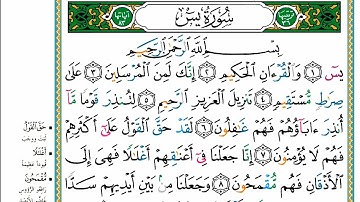 سُورَةُ يسٓ
بِسْمِ ٱللَّهِ ٱلرَّحْمَٰنِ ٱلرَّحِيمِ
يسٓ ١ وَٱلْقُرْءَانِ ٱلْحَكِيمِ ٢ إِنَّكَ لَمِنَ ٱلْمُرْسَلِينَ ٣ عَلَىٰ
صِرَٰطٍ مُّسْتَقِيمٍ ٤ تَنزِيلَ ٱلْعَزِيزِ ٱلرَّحِيمِ ٥ لِتُنذِرَ قَوْمًا مَّآ
أُنذِرَ ءَابَآؤُهُمْ فَهُمْ غَٰفِلُونَ ٦ لَقَدْ حَقَّ ٱلْقَوْلُ عَلَىٰٓ أَكْثَرِهِمْ
فَهُمْ لَا يُؤْمِنُونَ ٧ إِنَّا جَعَلْنَا فِىٓ أَعْنَٰقِهِمْ أَغْلَٰلًا فَهِىَ إِلَى
ٱلْأَذْقَانِ فَهُم مُّقْمَحُونَ ٨ وَجَعَلْنَا مِنۢ بَيْنِ أَيْدِيهِمْ سَدًّا
حَقَّ ٱلْقَوْلُ
ثبت ووجب
أَغْلَٰلًا
قيودا عظيمة
مُّقْمَحُونَ